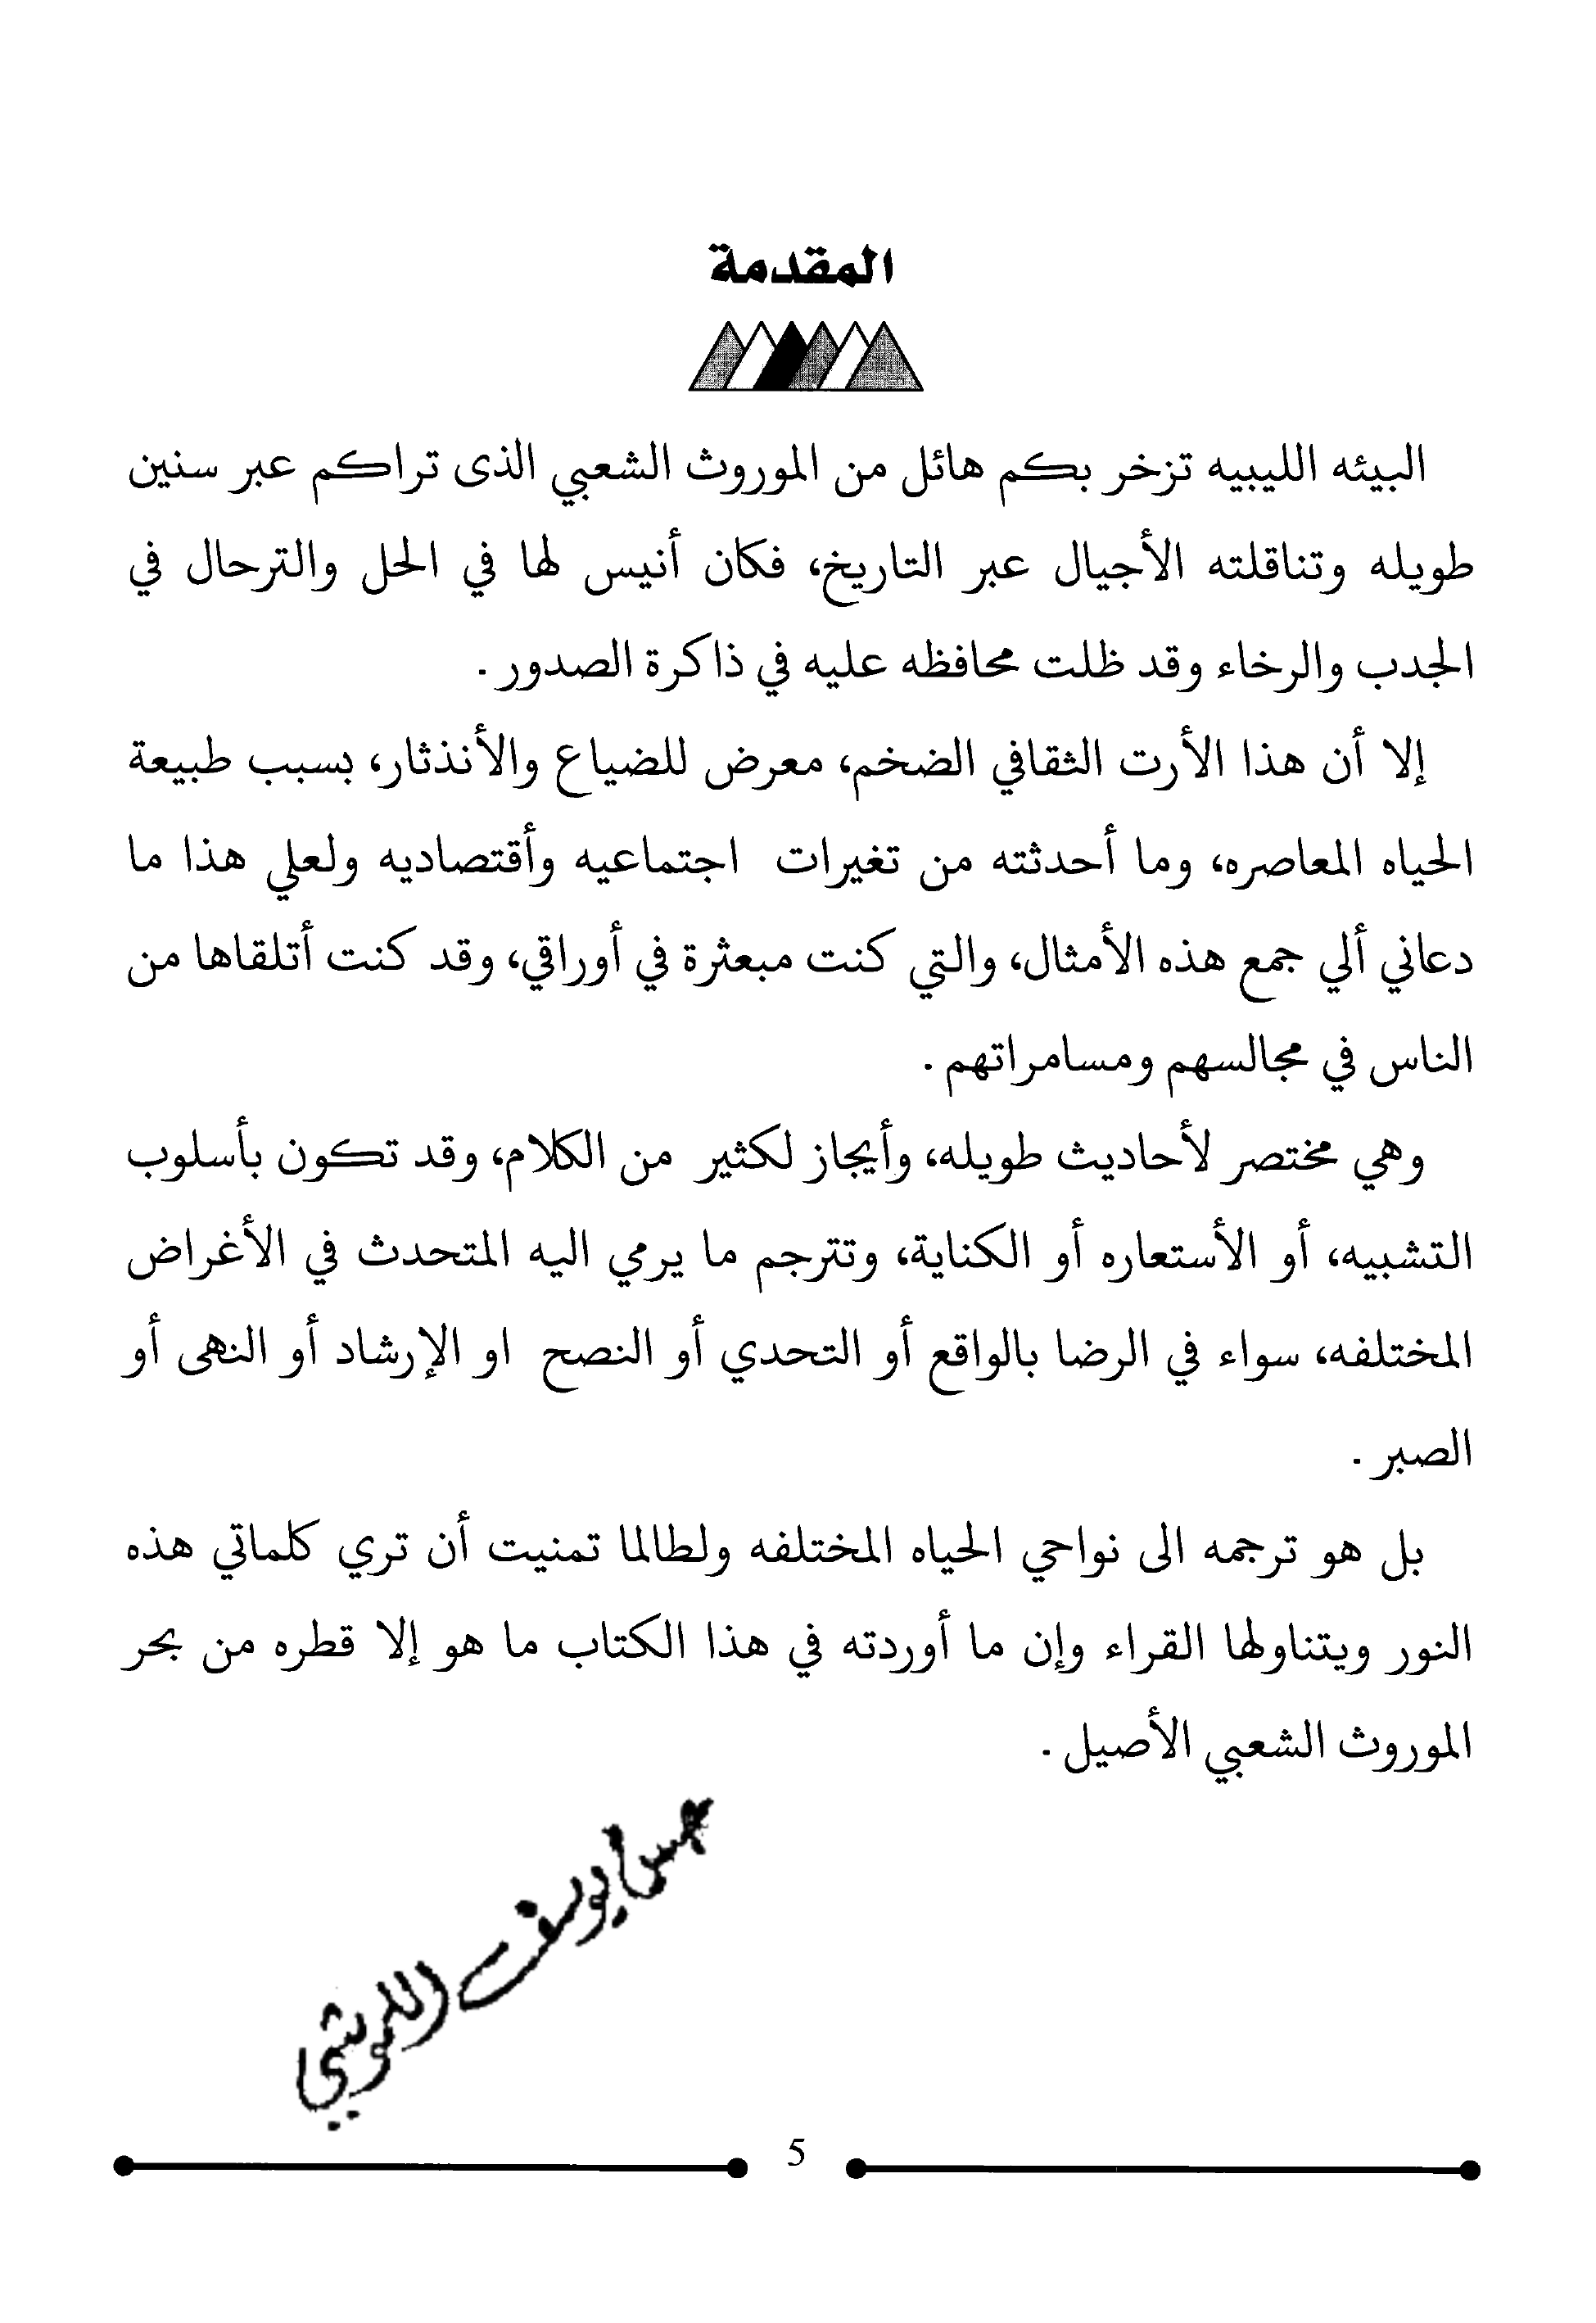 المقدمة
البيئه الليبيه تزخر بكم هائل من الموروث الشعبي الذى تراكم عبر سنين
طويله وتناقلته الأجيال عبر التاريخ، فكان أنيس لها في الحل والترحال في
الجدب والرخاء وقد ظلت محافظه عليه في ذاكرة الصدور .
إلا أن هذا الأرت الثقافي الضخم، معرض للضياع والأنذثار، بسبب طبيعة
الحياه المعاصره، وما أحدثته من تغيرات اجتماعيه وأقتصاديه ولعلي هذا ما
دعاني ألي جمع هذه الأمثال، والتي كنت مبعثرة في أوراقي، وقد كنت أتلقاها من
الناس في مجالسهم ومسامراتهم .
وهي مختصر لأحاديث طويله، وأيجاز لكثير من الكلام، وقد تكون بأسلوب
التشبيه، أو الأستعاره أو الكناية، وتترجم ما يرمي اليه المتحدث في الأغراض
المختلفه، سواء في الرضا بالواقع أو التحدي أو النصح او الإرشاد أو النهى أو
الصبر .
بل هو ترجمه الى نواحي الحياه المختلفه ولطالما تمنيت أن تري كلماتي هذه
النور ويتناولها القراء وإن ما أوردته في هذا الكتاب ما هو إلا قطره من بحر
الموروث الشعبي الأصيل .
يوسف
5